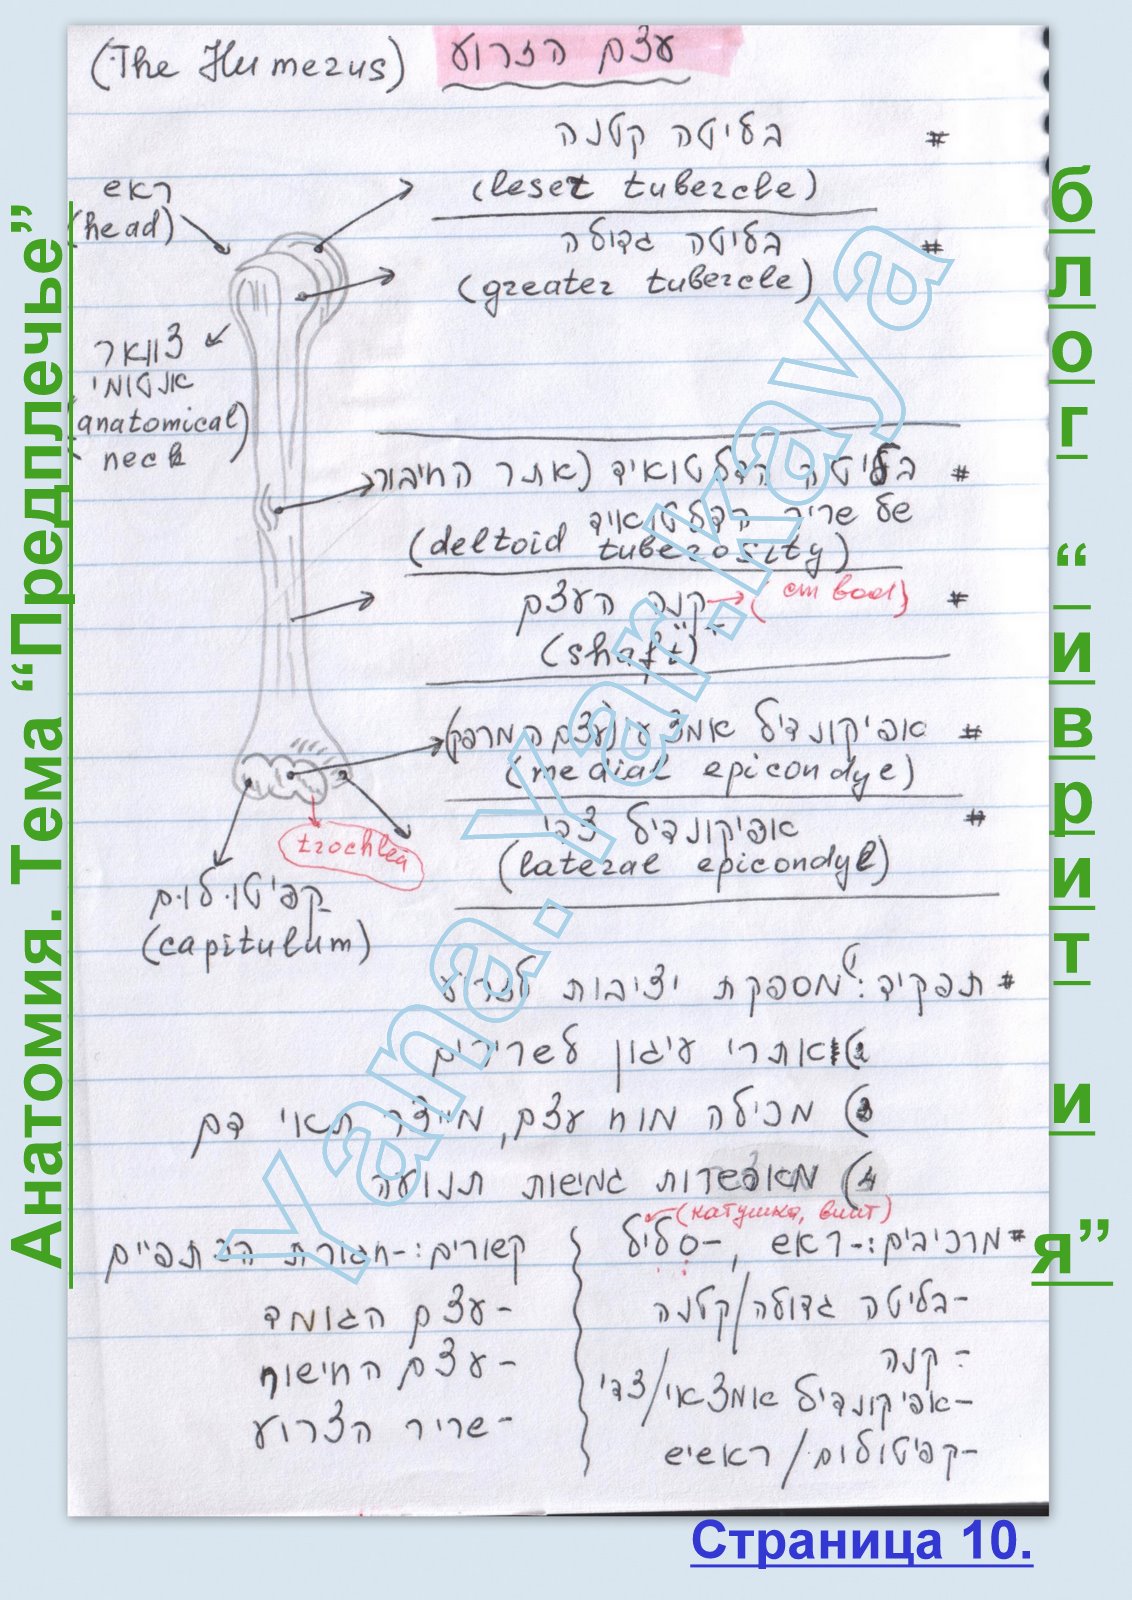 (The Humerus) עצם הזרוע
# בליטה קטנה
(leset tubercle)
# בליטה גדולה
(greater tubercle)
ראש
(head)
צוואר
אנטומי
(anatomical
neck)
# בליטה הדלטואיד (אתר החיבור
של שריר הדלטואיד
(deltoid tuberosity)
# קנה העצם
(shaft)
# אפיקונדיל אמצעי (עצם המרפק)
(medial epicondye)
# אפיקונדיל צדי
(lateral epicondyl)
trochlea
קפיטולום
(capitulum)
# תפקיד: 1) מספקת יציבות לזרוע
2) אתרי עיגון לשרירים
3) מכילה מוח עצם, מייצר תאי דם
4) מאפשרות גמישות תנועה
(катушка, винт)
# מרכיבים:- ראש, - סליל
- בליטה גדולה/קטנה
- קנה
- אפיקונדיל אמצאי/צדי
- קפיטולום/ראשיש
קשורים:- חגורת הכתפיים
- עצם הגומד
- עצם החישור
- שריר הצרוע
Анатомия. Тема “Предплечье”
блог “иврит и я”
Yana.Yar.kaya
Страница 10.